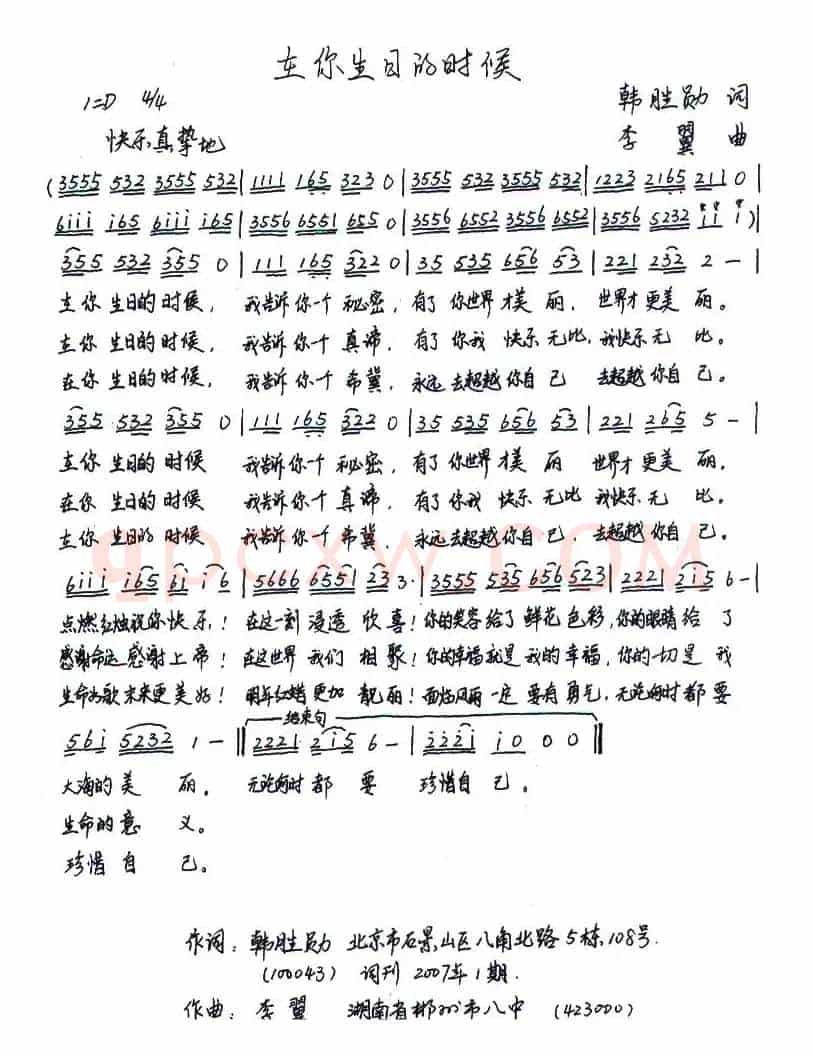 在你生日的时候
1=D 4/4 韩胜勋 词
快乐真挚地 李翼 曲
(3555 532 3555 532|1111 165 323 0|3555 532 3555 532|1223 2165 2110|
6iii i65 6iii i65|3556 6551 655 0|3556 6552 3556 6552|3556 5232 ii i)|
355 532 355 0|111 165 322 0|35 535 656 53|221 232 2 -|
在你生日的时候，我告诉你一个秘密，有了你世界才美丽，世界才更美丽。
在你生日的时候，我告诉你一个真谛，有了你我快乐无比，我快乐无比。
在你生日的时候，我告诉你一个希冀，永远去超越你自己 去超越你自己。
355 532 355 0|111 165 322 0|35 535 656 53|221 265 5 -|
在你生日的时候 我告诉你一个秘密，有了你世界才美丽 世界才更美丽。
在你生日的时候 我告诉你一个真谛，有了你我快乐无比 我快乐无比。
在你生日的时候 我告诉你一个希冀，永远去超越你自己，去超越你自己。
qpcxw.COM
6iii i65 6i i6|5666 6551 23 3·|3555 535 656 523|2221 2i5 6-|
点燃红烛祝你快乐！在这一刻浸透欣喜！你的笑容给了鲜花色彩，你的眼睛给了
感谢命运感谢上帝！在这世界我们相聚！你的幸福就是我的幸福，你的一切是我
生命如歌未来更美好！明年红蜡更加靓丽！面临风雨一定要有勇气，无论何时都要
结束句
56i 5232 1 -||2221 2i5 6 -|222i i0 0 0||
大海的美丽。无论何时都要珍惜自己。
生命的意义。
珍惜自己。
作词：韩胜勋 北京市石景山区八角北路5栋108号.
(100043) 词刊 2007年1期.
作曲：李翼 湖南省郴州市八中 (423000)